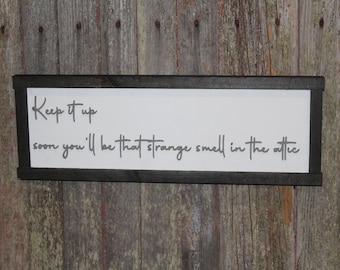 Keep it up
soon you'll be that strange smell in the attic